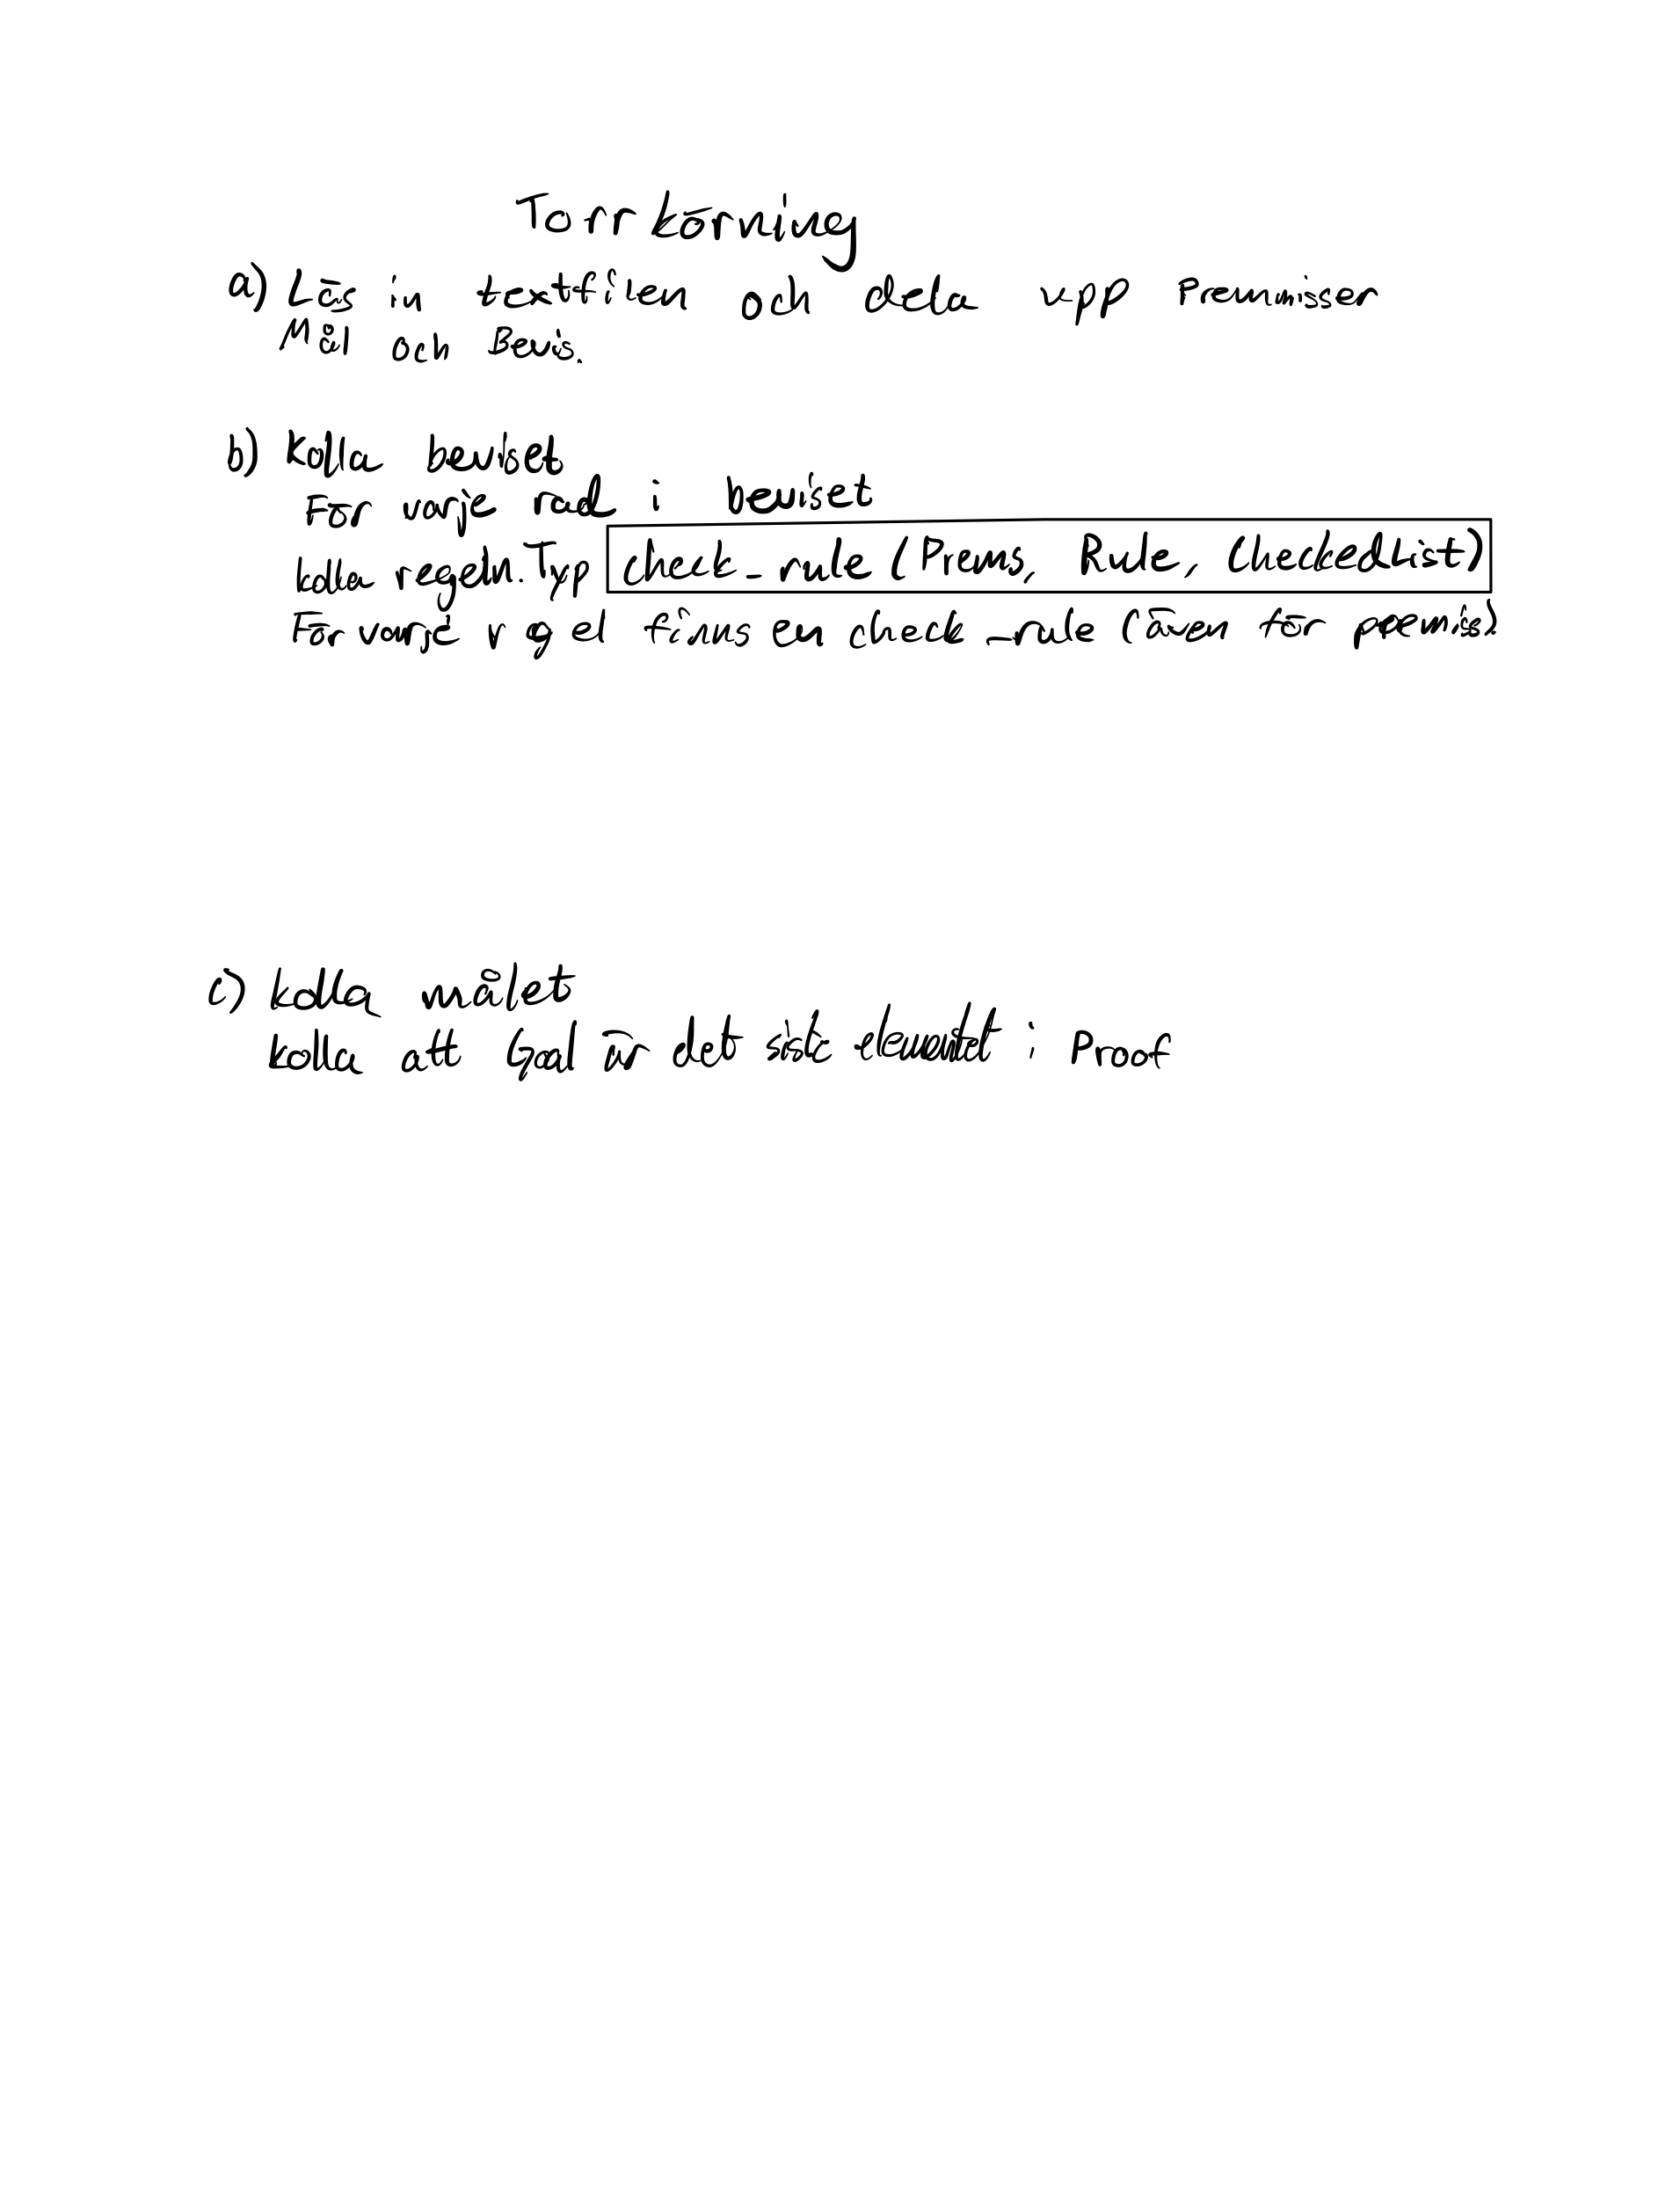 Torrkörning
a) Läs in textfilen och dela upp Premisser
Mål och Bevis.
b) Kolla beviset
För varje rad i beviset
kolla regeln. Typ check_rule (Prems, Rule, CheckedList)
För varje regel finns en check_rule (även för premiss)
c) kolla målet
kolla att Goal är det sista elementet i Proof